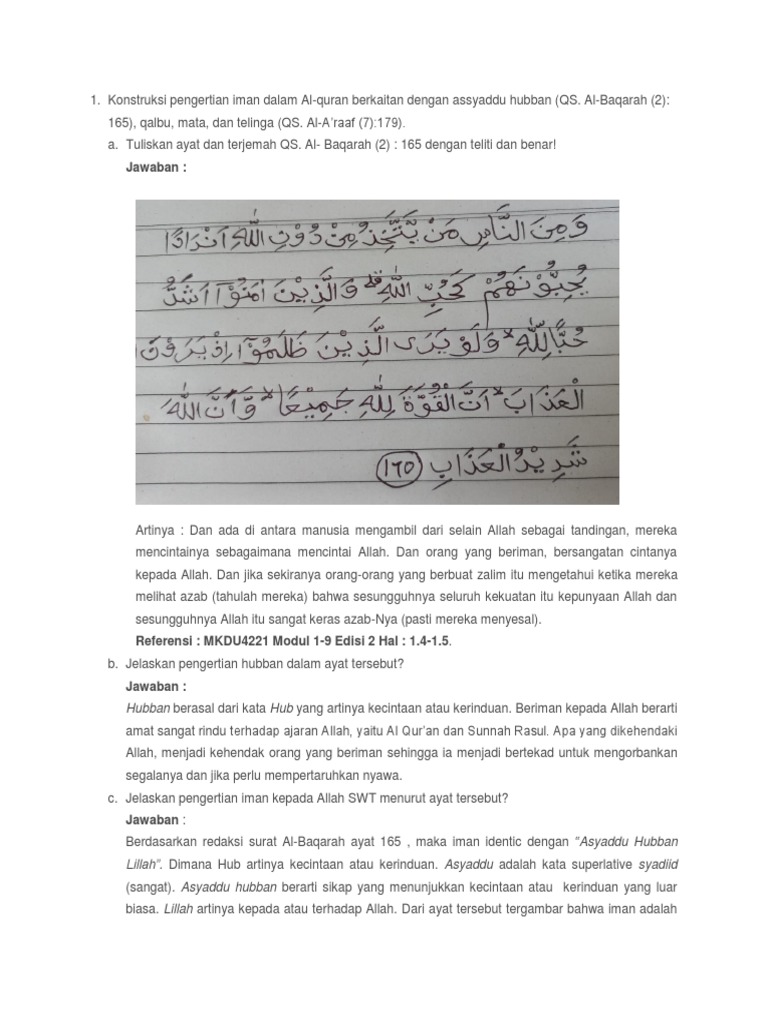 1. Konstruksi pengertian iman dalam Al-quran berkaitan dengan assyaddu hubban (QS. Al-Baqarah (2):
165), qalbu, mata, dan telinga (QS. Al-A’raaf (7):179).
a. Tuliskan ayat dan terjemah QS. Al- Baqarah (2) : 165 dengan teliti dan benar!
Jawaban :
وَمِنَ النَّاسِ مَنْ يَّتَّخِذُ مِنْ دُوْنِ اللّٰهِ اَنْدَادًا
يُحِبُّوْنَهُمْ كَحُبِّ اللّٰهِ ۗ وَالَّذِيْنَ اٰمَنُوْٓا اَشَدُّ
حُبًّا لِلّٰهِ ۙ وَلَوْ يَرَى الَّذِيْنَ ظَلَمُوْٓا اِذْ يَرَوْنَ
الْعَذَابَ ۙ اَنَّ الْقُوَّةَ لِلّٰهِ جَمِيْعًا ۙ وَّاَنَّ اللّٰهَ
شَدِيْدُ الْعَذَابِ ١٦٥
Artinya : Dan ada di antara manusia mengambil dari selain Allah sebagai tandingan, mereka
mencintainya sebagaimana mencintai Allah. Dan orang yang beriman, bersangatan cintanya
kepada Allah. Dan jika sekiranya orang-orang yang berbuat zalim itu mengetahui ketika mereka
melihat azab (tahulah mereka) bahwa sesungguhnya seluruh kekuatan itu kepunyaan Allah dan
sesungguhnya Allah itu sangat keras azab-Nya (pasti mereka menyesal).
Referensi : MKDU4221 Modul 1-9 Edisi 2 Hal : 1.4-1.5.
b. Jelaskan pengertian hubban dalam ayat tersebut?
Jawaban :
Hubban berasal dari kata Hub yang artinya kecintaan atau kerinduan. Beriman kepada Allah berarti
amat sangat rindu terhadap ajaran Allah, yaitu Al Qur’an dan Sunnah Rasul. Apa yang dikehendaki
Allah, menjadi kehendak orang yang beriman sehingga ia menjadi bertekad untuk mengorbankan
segalanya dan jika perlu mempertaruhkan nyawa.
c. Jelaskan pengertian iman kepada Allah SWT menurut ayat tersebut?
Jawaban :
Berdasarkan redaksi surat Al-Baqarah ayat 165 , maka iman identic dengan “Asyaddu Hubban
Lillah”. Dimana Hub artinya kecintaan atau kerinduan. Asyaddu adalah kata superlative syadiid
(sangat). Asyaddu hubban berarti sikap yang menunjukkan kecintaan atau kerinduan yang luar
biasa. Lillah artinya kepada atau terhadap Allah. Dari ayat tersebut tergambar bahwa iman adalah